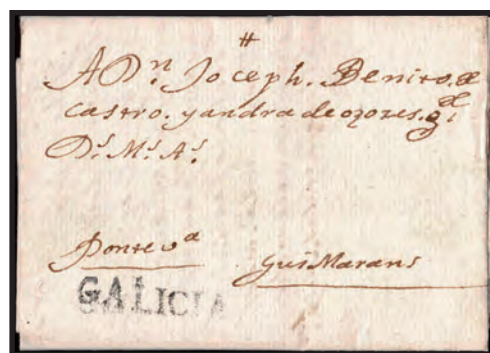 #
A Dn. Joceph. Benito. de
Castro. y andra de ozores. gde
Ds. Ms. As.
Ponteva
guisMarans
GALICIA